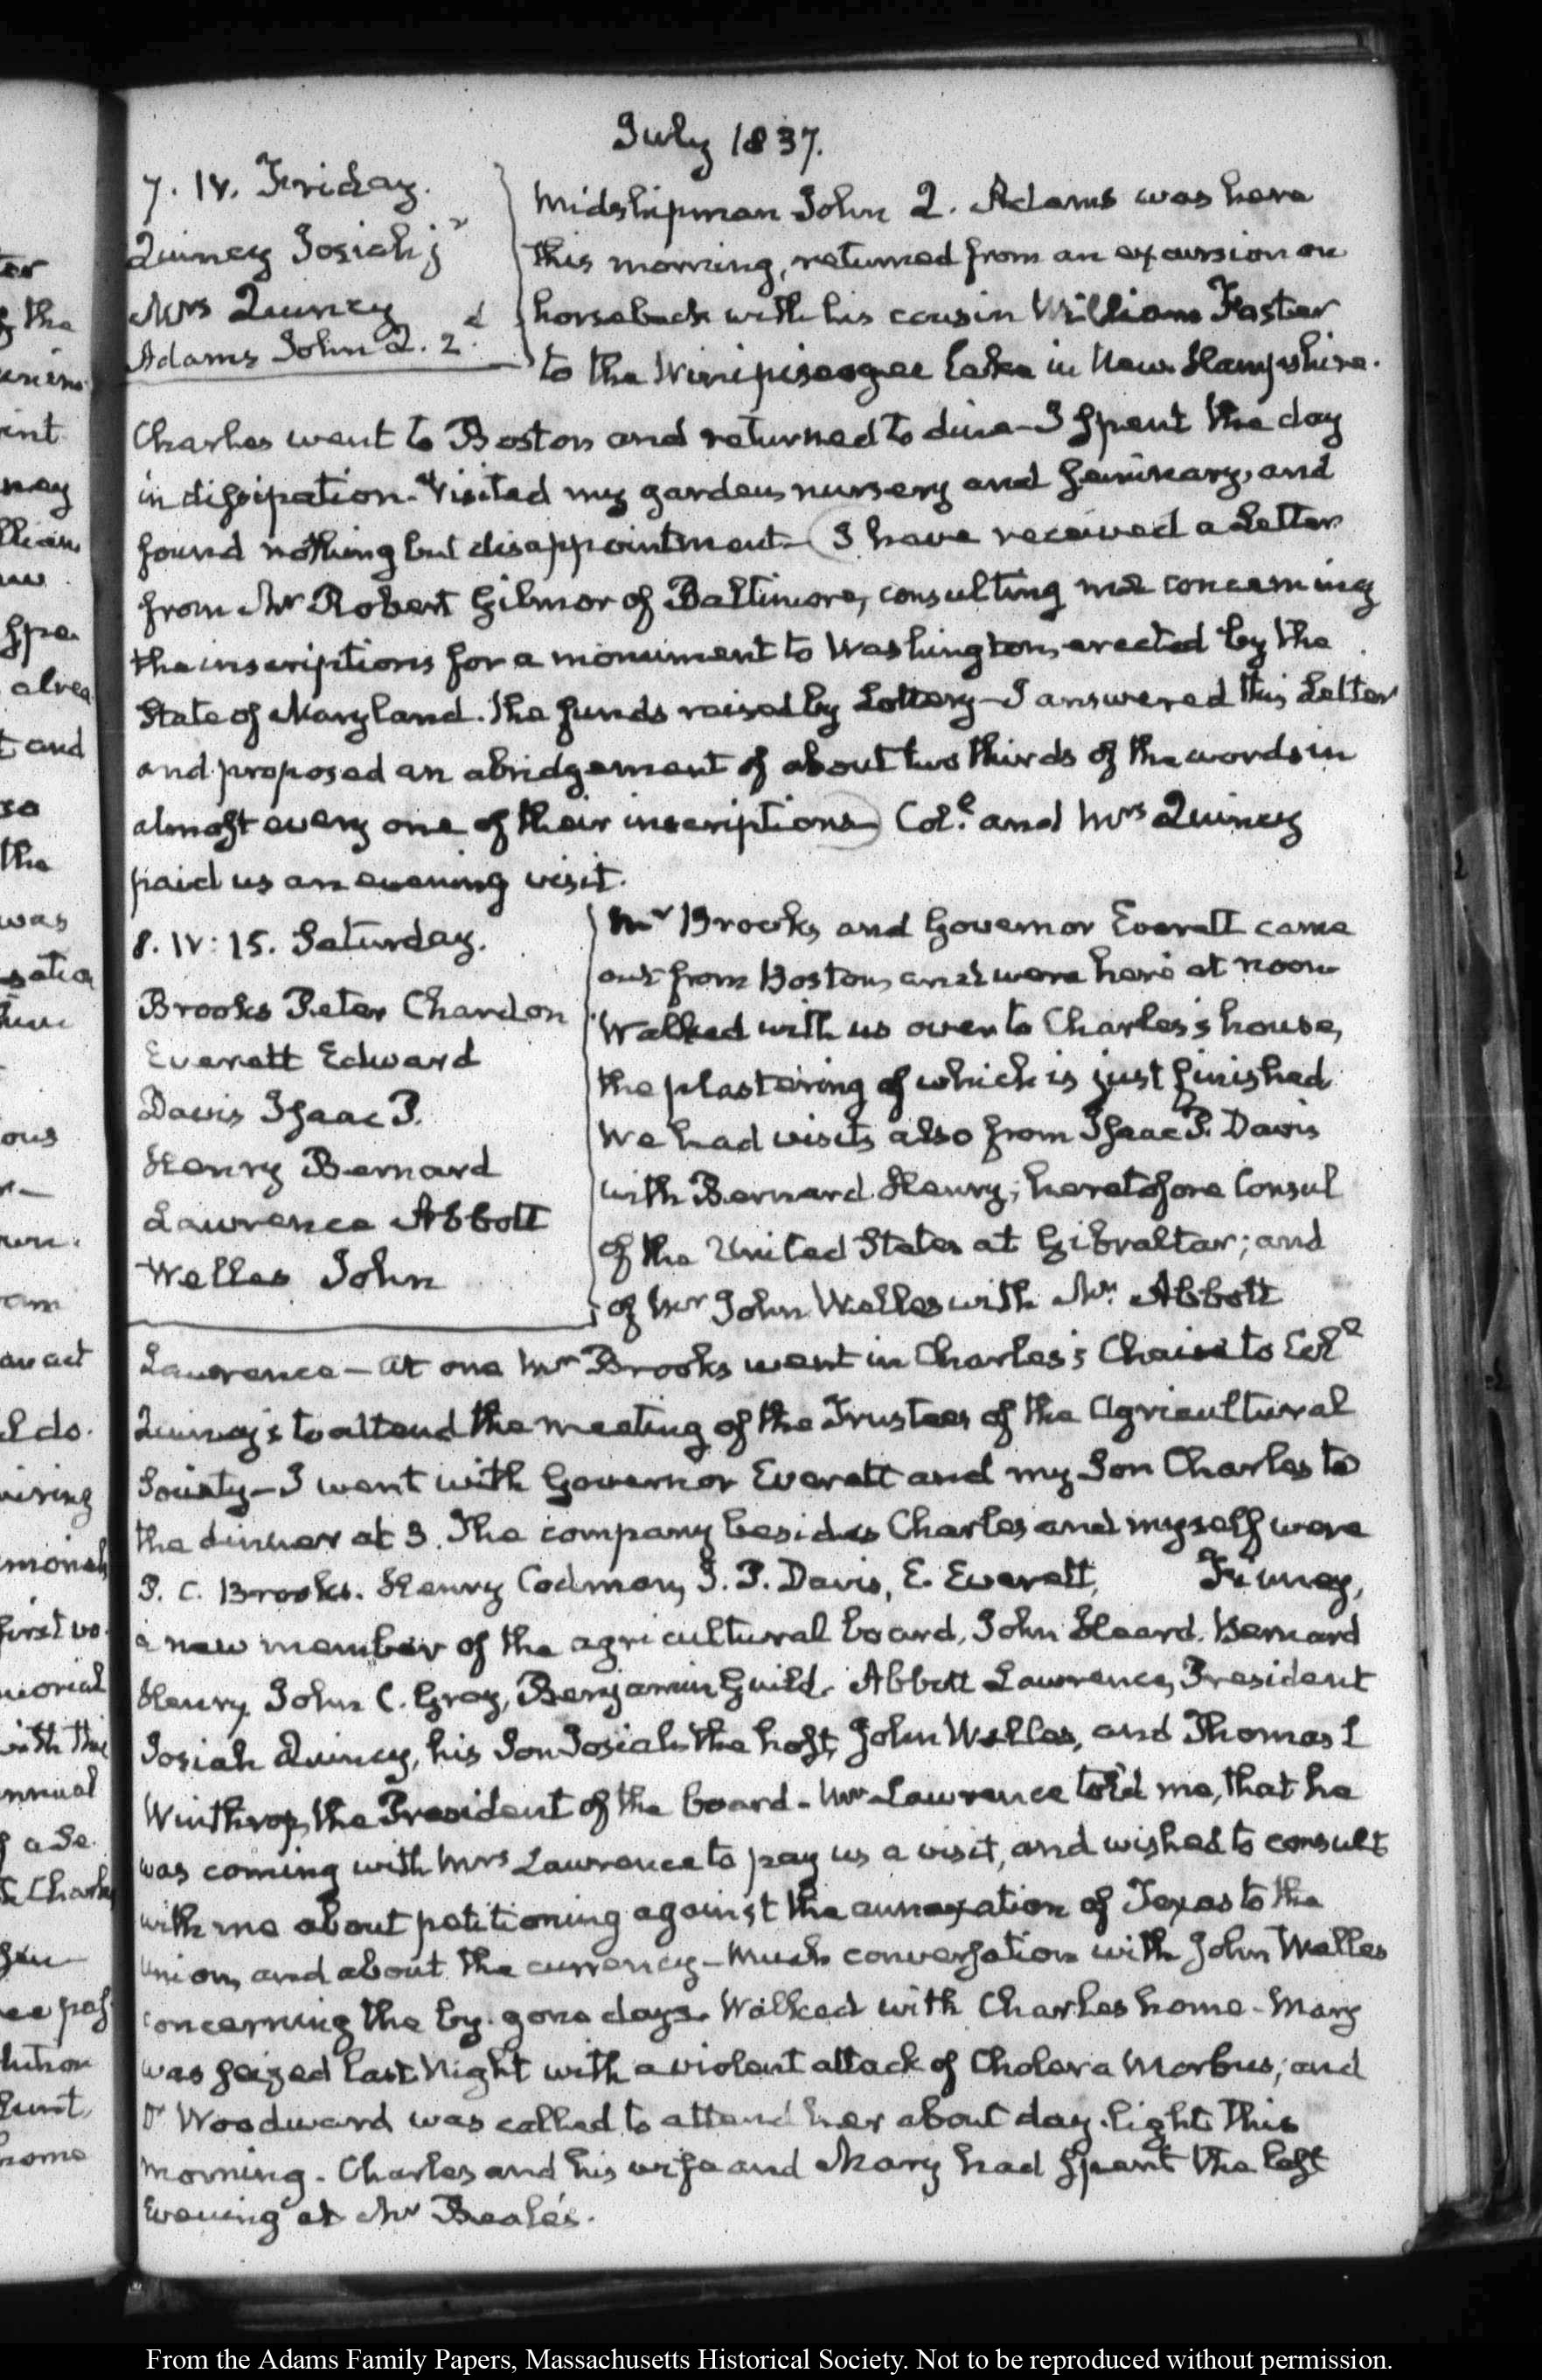 July 1837.
7. IV. Friday.
Quincy Josiah jr
Mrs Quincy d
Adams John Q. 2.
Midshipman John Q. Adams was here
this morning, returned from an excursion on
horseback with his cousin William Foster
to the Winipiseogee Lake in New-Hampshire.
Charles went to Boston and returned to dine - I spent the day
in dissipation. Visited my garden, nursery and seminary, and
found nothing but disappointment - I have received a Letter
from Mr Robert Gilmor of Baltimore, consulting me concerning
the inscriptions for a monument to Washington, erected by the
State of Maryland. The funds raised by Lottery - I answered this Letter
and proposed an abridgement of about two thirds of the words in
almost every one of their inscriptions - Coll. and Mrs Quincy
paid us an evening visit.
8. IV: 15. Saturday.
Brooks Peter Chardon
Everett Edward
Davis Isaac P.
Henry Bernard
Lawrence Abbott
Welles John
Mr Brooks, and Governor Everett came
out from Boston, and were here at noon
Walked with us over to Charles's house,
the plastering of which is just finished
We had visits also from Isaac P. Davis
with Bernard Henry; heretofore Consul
of the United States at Gibraltar; and
of Mr John Welles with Mr Abbott
Lawrence - At one Mr Brooks went in Charles's Chaise to Coll
Quincy's to attend the meeting of the Trustees of the Agricultural
Society - I went with Governor Everett and my Son Charles to
the dinner at 3. The company besides Charles and myself were
P. C. Brooks. Henry Codman, I. P. Davis, E. Everett,
a new member of the agricultural board, John Heard. Bernard
Henry, John C. Gray, Benjamin Guild. Abbott Lawrence, President
Josiah Quincy, his Son Josiah the host, John Welles, and Thomas L
Winthrop, the President of the board - Mr Lawrence told me, that he
was coming with Mrs Lawrence to pay us a visit, and wished to consult
with me about petitioning against the annexation of Texas to the
Union, and about the currency - Much conversation with John Welles
concerning the by-gone days. Walked with Charles home - Mary
was seized last Night with a violent attack of Cholera Morbus; and
Dr Woodward was called to attend her about day-light this
morning. Charles and his wife and Mary had spent the last
Evening at Mr Beale's.
From the Adams Family Papers, Massachusetts Historical Society. Not to be reproduced without permission.